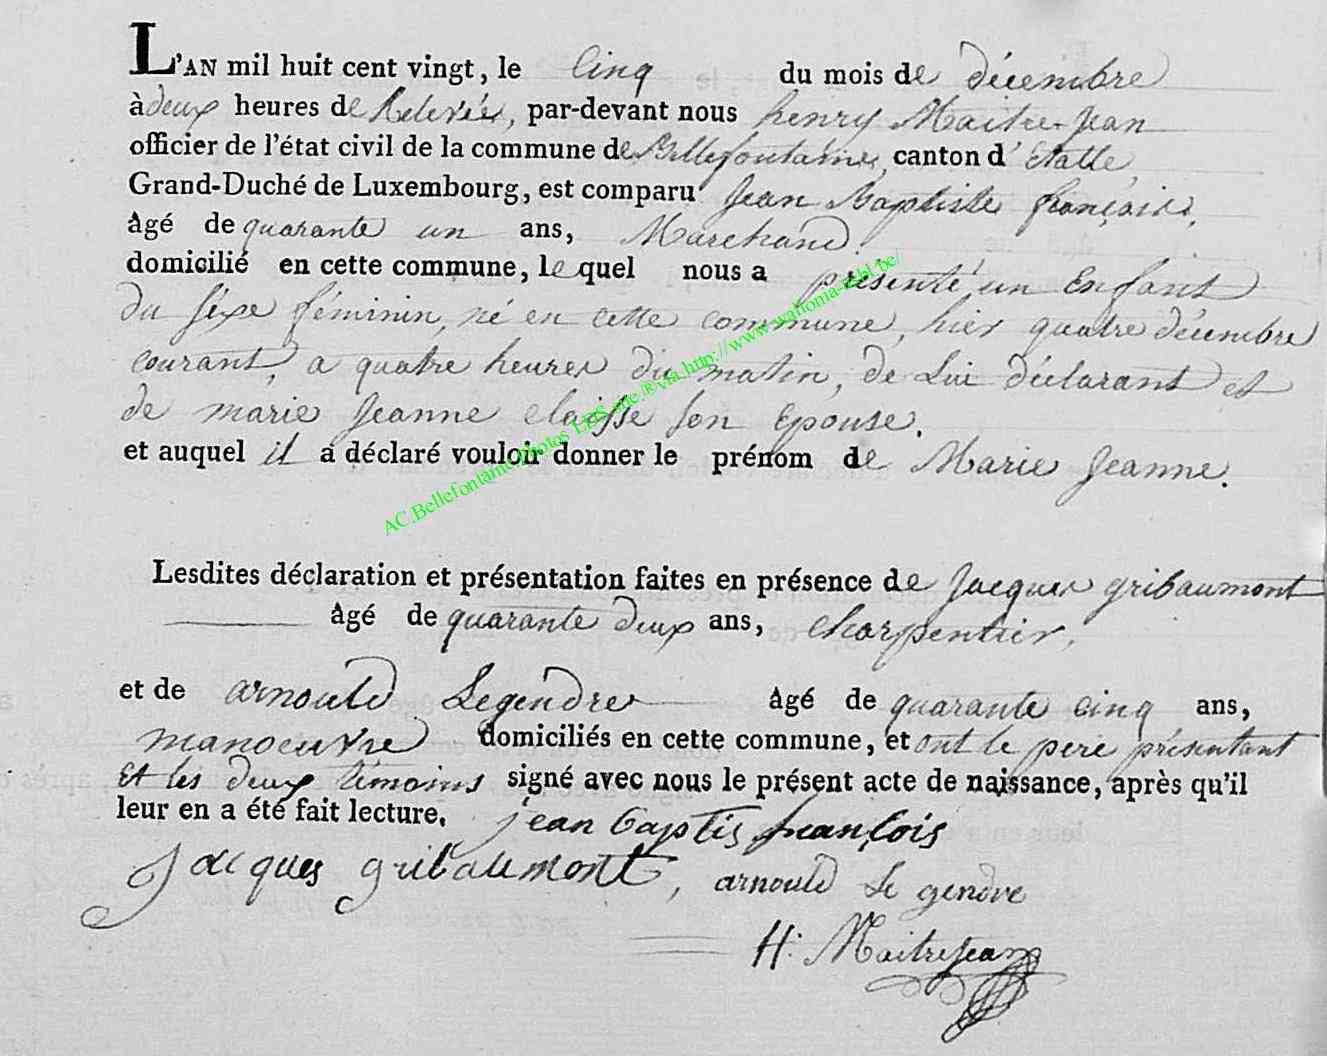 L'AN mil huit cent vingt, le Cinq du mois de décembre
à deux heures de Relevée, par-devant nous henry Maitre-Jean
officier de l'état civil de la commune de Bellefontaine, canton d'Etalle,
Grand-Duché de Luxembourg, est comparu Jean Baptiste françois,
âgé de quarante un ans, Marchand
domicilié en cette commune, lequel nous a présenté un Enfant
du séxe féminin, né en cette commune, hier quatre décembre
courant, a quatre heures du matin, de Lui déclarant et
de marie Jeanne claisse son Epouse.
et auquel il a déclaré vouloir donner le prénom de Marie Jeanne.
AC.Bellefontaine Photos LDS site ® via http://www.wallonia-asbl.be/
Lesdites déclaration et présentation faites en présence de Jacques gribaumont
âgé de quarante deux ans, charpentier,
et de arnould Legendre âgé de quarante cinq ans,
manoeuvre domiciliés en cette commune, et ont le pere présentant
Et les deux témoins signé avec nous le présent acte de naissance, après qu'il
leur en a été fait lecture. jean baptis françois
Jacques gribaumont, arnould Le gendre
H. MaitreJean